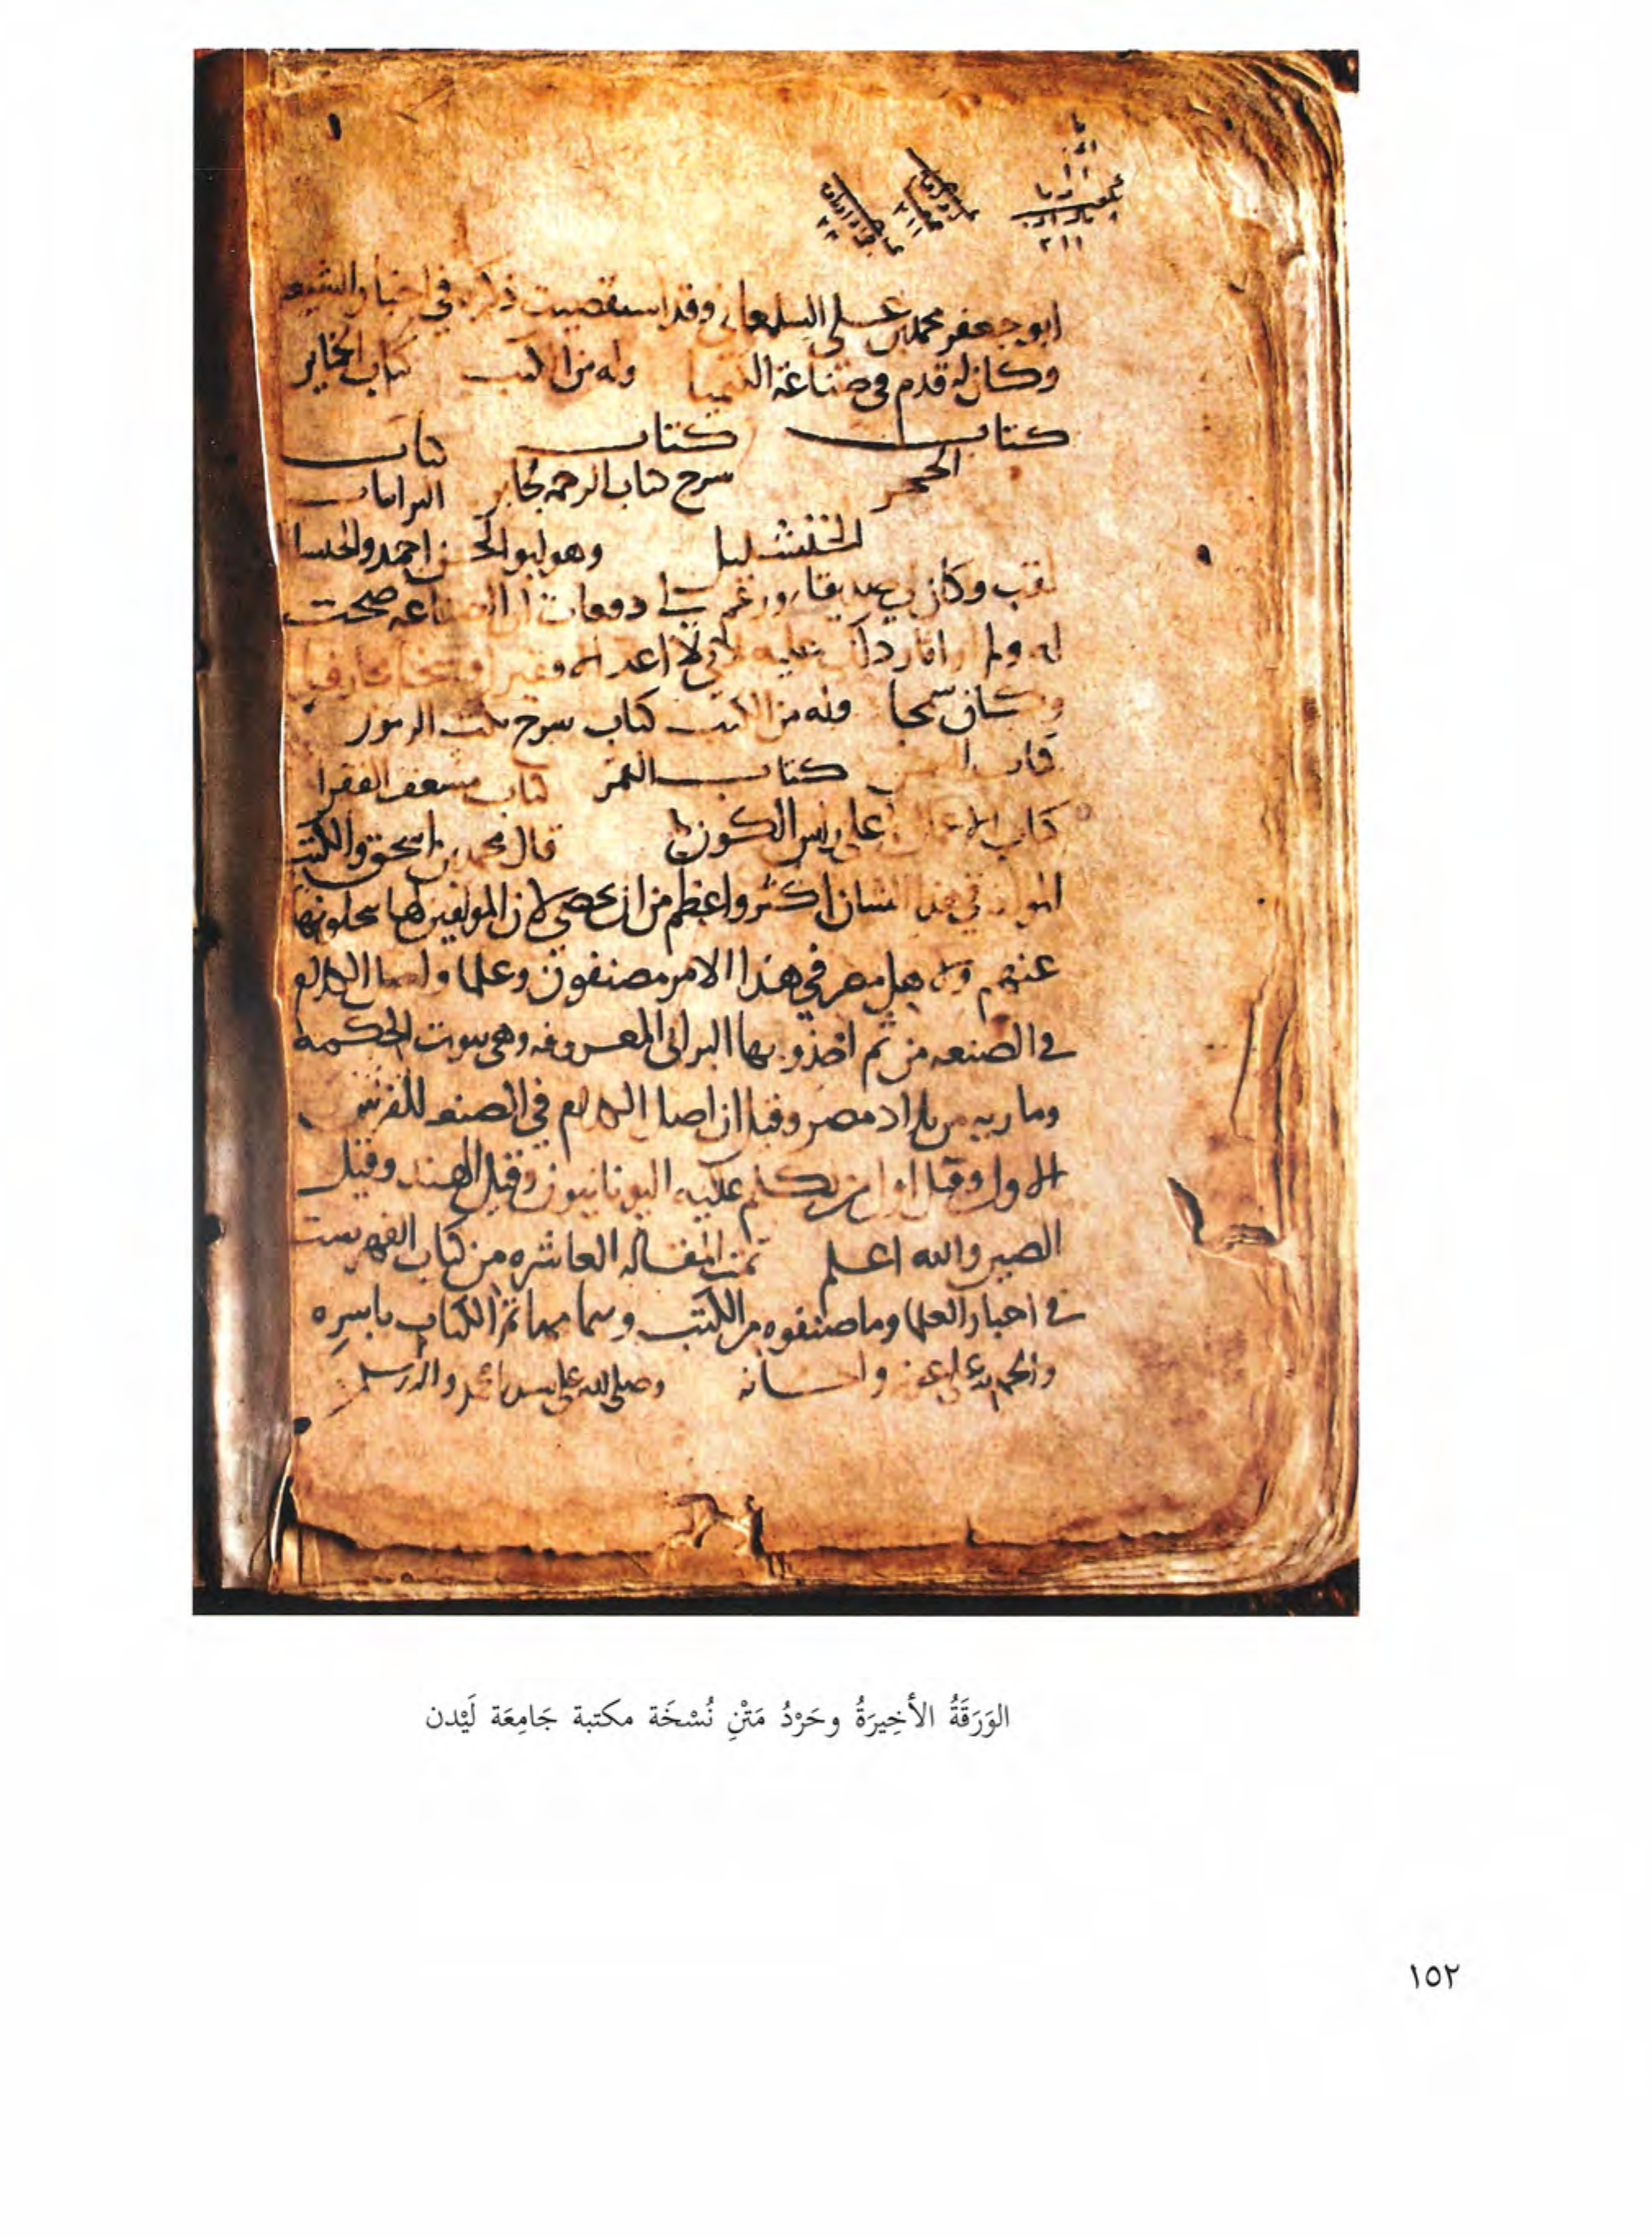 ابو جعفر محمد بن على السلمعانى وقد استقصيت ذكره فى اخبار الشيعه
وكان له قدم فى صناعة الكيميا وله من الكتب كتاب الخماير
كتاب كتاب كتاب
الحجر سرح كتاب الرحمه لجابر البرانيات
الخنشليل وهو ابو الحسن احمد والخنسليل
لقب وكان لى صديقا وزعم لى دفعات ان الصناعه صحت
له ولم ار اثار ذلك عليه لانى لا اعده الا فقيرا
وكان سمحا وله من الكتب كتاب سرح نكت الرموز
كتاب كتاب القمر كتاب مسعف الفقرا
كتاب الاعمال على راس الكور قال محمد بن اسحق والكتب
المولفه فى هذا الشان اكثر واعظم من ان تحصى لان المولفين لها ينحلونها
عنهم ولاهل مصر فى هذا الامر مصنفون وعلما واصل الكلام
فى الصنعه من ثم اخذ وبها البرابى المعروفه وهى بيوت الحكمة
وماريه من بلاد مصر وقيل ان اصل الكلام فى الصنعه للفرس
الاول وقيل اول من تكلم عليه اليونانيون وقيل الهند وقيل
الصين والله اعلم تمت المقاله العاشره من كتاب الفهرست
فى اخبار العلما وما صنفوه من الكتب وبتمامها تم الكتاب باسره
والحمد لله على عونه واحسانه وصلى الله على سيدنا محمد واله وسلم
الوَرَقَةُ الأخِيرَةُ وحَرْدُ مَتْنِ نُسْخَة مكتبة جَامِعَة لَيْدن
١٥٢